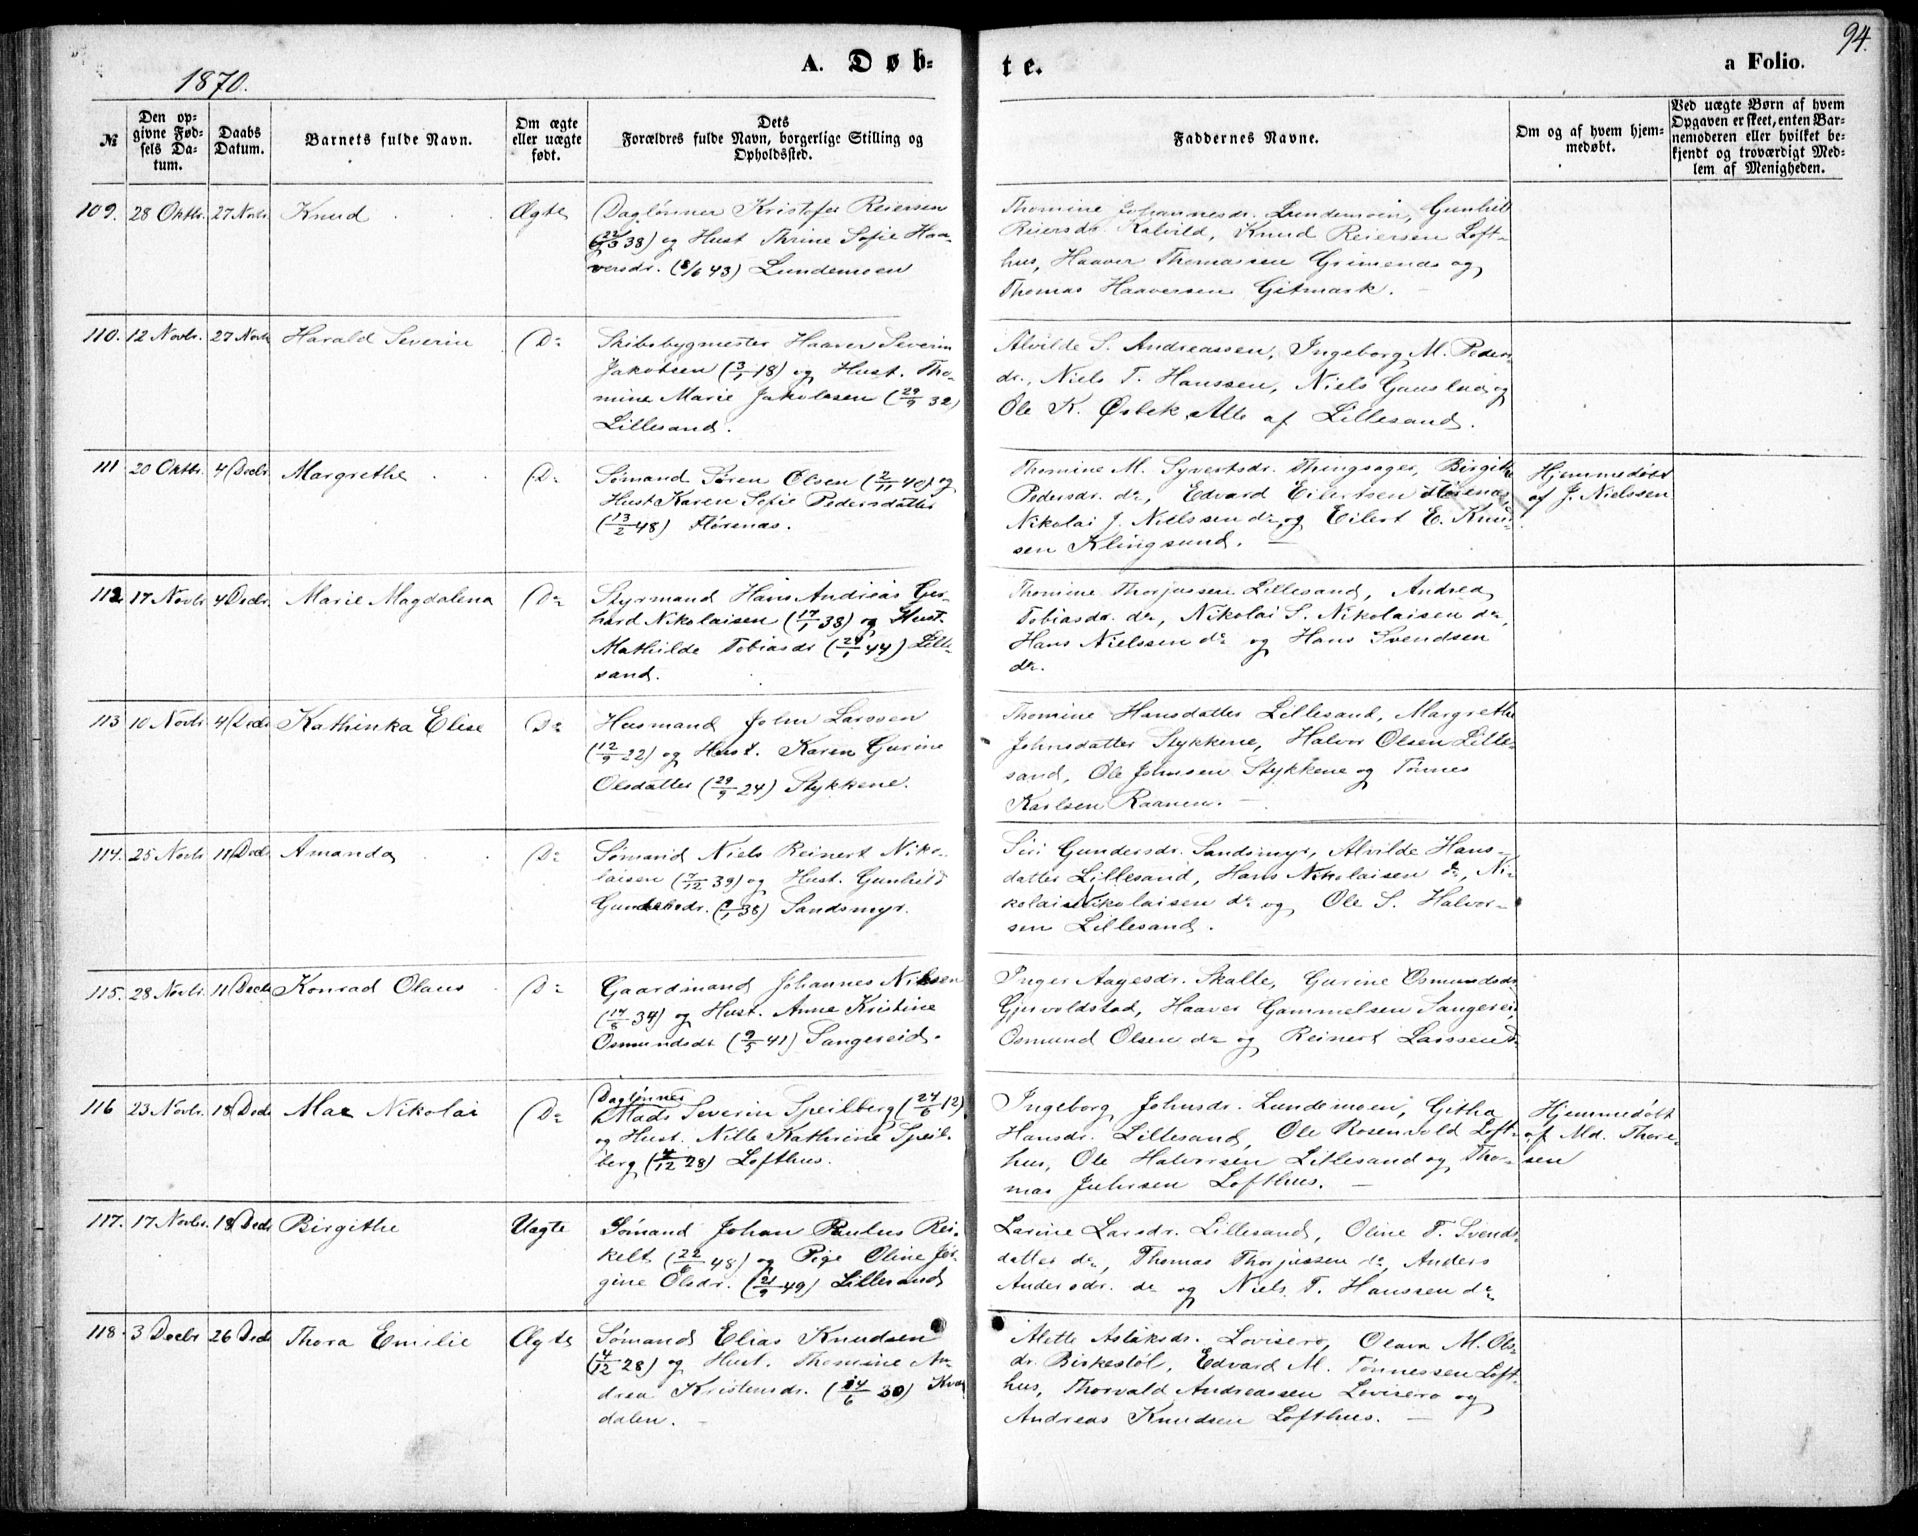 94.
1870.
A. Døb-
te.
a Folio.
№
Den op-
givne Fød-
sels Da-
tum.
Daabs
Datum.
Barnets fulde Navn.
Om ægte
eller uægte
født.
Dets
Forældres fulde Navn, borgerlige Stilling og
Opholdssted.
Faddernes Navne.
Om og af hvem hjem-
medøbt.
Ved uægte Børn af hvem
Opgaven er skeet, enten Bar-
nemoderen eller hvilket be-
kjendt og troværdigt Med-
lem af Menigheden.
109. 28 Oktbr. 27 Novbr. Knud Ægte
Daglønner Kristofer Reiersen
(22/3 38) og Hust Thrine Sofie Haa-
versdr. (8/6 43) Lundemoen
Thomine Johannesdr. Lundemoen, Gunhild
Reiersdr. Kalvild, Knud Reiersen Loft-
hus, Haaver Thomassen Grimenes og
Thomas Haaversen Gitmark. —
110. 12 Novbr. 27 Novbr Harald Severin Do
Skibsbygmester Haaver Severin
Jakobsen (3/1 18) og Hust. Tho-
mine Marie Jakobsen (29/9 32)
Lillesand.
Alvilde S. Andreassen, Ingeborg M. Peders
dr., Niels T. Hanssen, Niels Gauslaa og
Ole K. Øsbek, Alle af Lillesand.
111 20 Oktbr. 4 Decbr. Margrethe Do
Sømand Søren Olsen (2/11 40) og
Hust Karen Sofie Pedersdatter
(13/2 48) Flørenæs.
Thomine M. Syvertsdr. Thingsager, Birgithe
Pedersdr. do, Edvard Eilertsen Flørenæs,
Nikolai J. Nielssen do og Eilert E. Knud
sen Klingsund. —
Hjemmedøbt
af J. Nielssen
112. 17 Novbr 4 Decbr. Marie Magdalena Do
Styrmand Hans Andreas Ger-
hard Nikolaisen (17/1 38) og Hust.
Mathilde Tobiasdr (24/1 44) Lille-
sand.
Thomine Thorjussen Lillesand, Andrea
Tobiasdr. do, Nikolai S. Nikolaisen do,
Hans Nielssen do og Hans Svendsen
do.
113 10 Novbr. 4 Decbr Kathinka Elise Do
Husmand John Larssen
(12/9 22) og Hust. Karen Gurine
Olsdatter (29/9 24) Stykkene.
Thomine Hansdatter Lillesand, Margrethe
Johnsdatter Stykkene, Halvor Olsen Lille-
sand, Ole Johnsen Stykkene og Tønnes
Karlsen Raanen. —
114. 25 Novbr 11 Decbr Amanda Do
Sømand Niels Reinert Niko-
laisen (7/12 39) og Hust. Gunhild
Gundersdr. (9/1 38) Sandsmyr.
Siri Gundersdr. Sandsmyr, Alvilde Hans-
datter Lillesand, Hans Nikolaisen do, Ni-
kolai Nikolaisen do og Ole S. Halvor-
sen Lillesand.
115. 28 Novbr. 11 Decbr Konrad Olaus Do
Gaardmand Johannes Nilsen
(17/8 34) og Hust. Anne Kristine
Osmundsdr (9/5 41) Sangereid.
Inger Aagesdr. Skalle, Gurine Osmundsdr
Gjervoldstad, Haaver Gammelsen Sangereid,
Osmund Olsen do og Reinert Larssen do
116 23 Novbr. 18 Decbr Mae Nikolai Do
Daglønner
Mads Severin Speilberg (24/6 12)
og Hust. Nille Kathrine Speil-
berg (4/12 28) Lofthus.
Ingeborg Johnsdr. Lundemoen, Githa
Hansdr. Lillesand, Ole Rosenvold Loft-
hus, Ole Halvorsen Lillesand og Tho-
mas Juliusen Lofthus. —
Hjemmedøbt
af Md. Thore-
sen
117. 17 Novbr. 18 Decbr Birgithe Uægte
Sømand Johan Paulus Rei-
kelt (22/6 48) og Pige Oline Jør-
gine Olsdr. (21/9 49) Lillesand
Larine Larsdr. Lillesand, Oline T. Svends-
datter do, Thomas Thorjussen do, Anders
Andersdr. do og Niels T. Hanssen do
118. 3 Decbr 26 Decbr Thora Emilie Ægte
Sømand Elias Knudsen
(4/12 28) og Hust. Thomine An-
drea Kristensdr. (14/6 30) Kvaa
dalen. —
Alette Aslaksdr. Lovisero, Olava M. Ols-
dr. Birkestøl, Edvard M. Tønnessen Loft-
hus, Thorvald Andreassen Lovisero og
Andreas Knudsen Lofthus. —